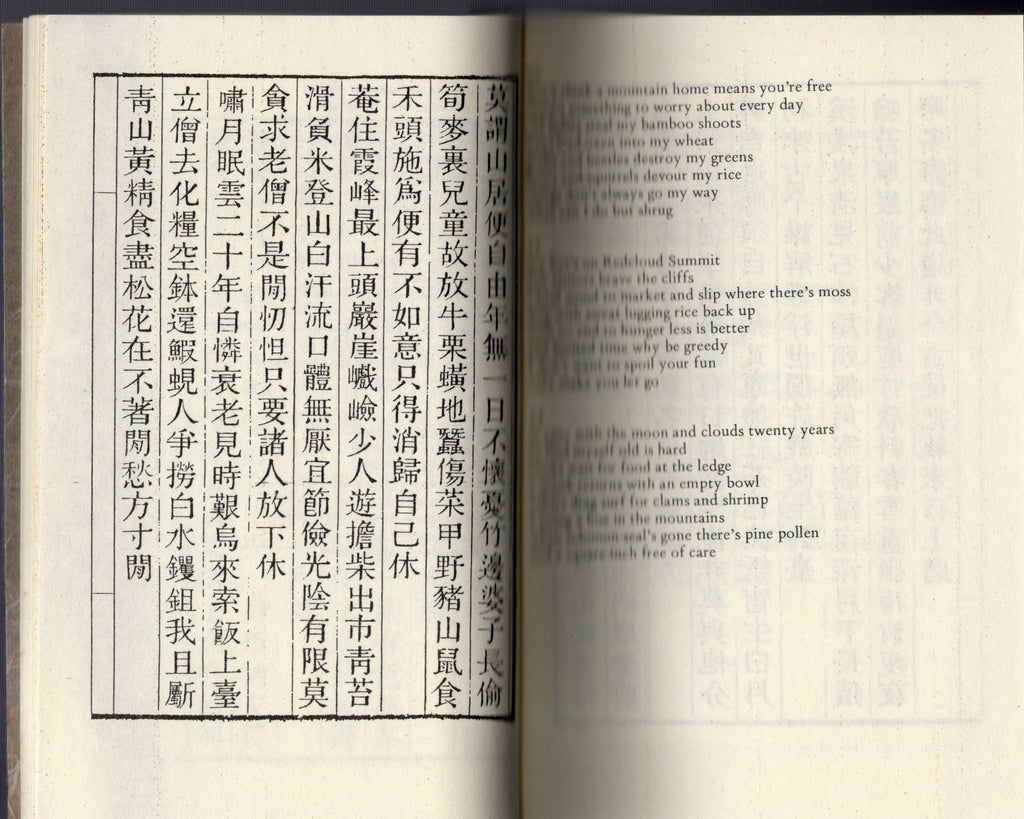 莫謂山居便自由年無一日不懷憂竹邊婆子長偷
筍麥裏兒童故放牛栗蟥地蠶傷菜甲野豬山鼠食
禾頭施爲便有不如意只得消歸自己休
菴住霞峰最上頭巖崖巇嶮少人遊擔柴出市靑苔
滑負米登山白汗流口體無厭宜節儉光陰有限莫
貪求老僧不是閒忉怛只要諸人放下休
嘯月眠雲二十年自憐衰老見時艱烏來索飯上臺
立僧去化糧空鉢還鰕蜆人爭撈白水钁鉏我且斸
靑山黃精食盡松花在不著閒愁方寸閒
think a mountain home means you're free
something to worry about every day
steal my bamboo shoots
into my wheat
beetles destroy my greens
squirrels devour my rice
always go my way
I do but shrug
on Redcloud Summit
brave the cliffs
to market and slip where there's moss
sweat lugging rice back up
to hunger less is better
time why be greedy
want to spoil your fun
make you let go
with the moon and clouds twenty years
myself old is hard
call for food at the ledge
returns with an empty bowl
surf for clams and shrimp
a hoe in the mountains
seal's gone there's pine pollen
square inch free of care